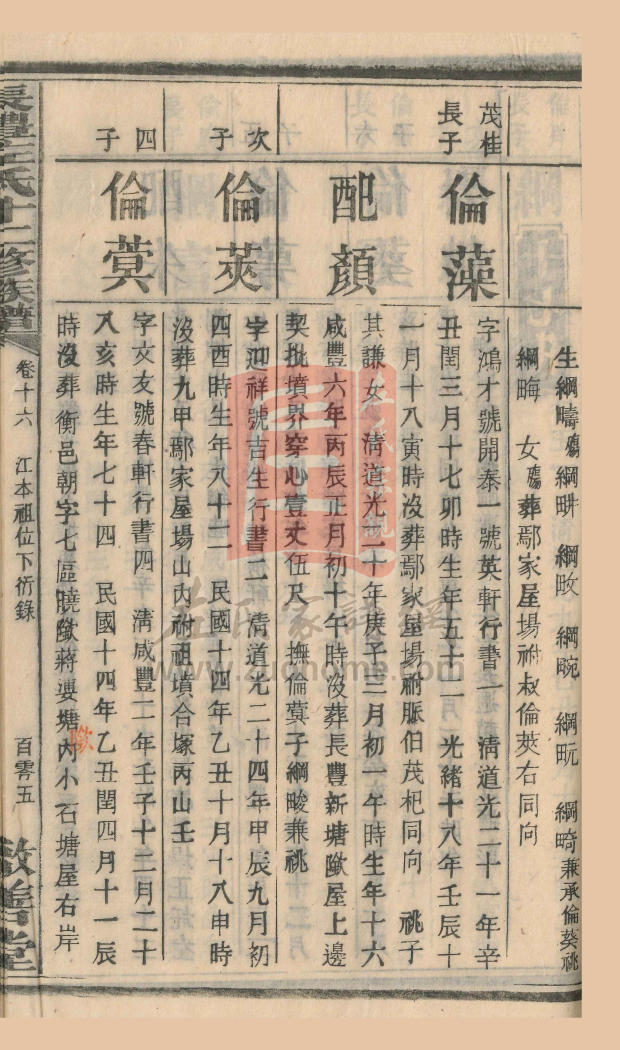 生綱疇殤綱畊 綱畋 綱畹 綱畃 綱畸兼承倫葵祧
綱晦 女殤葬鄢家屋場祔叔倫莢右同向
茂桂
長子
倫藻
字鴻才號開泰一號英軒行書一 清道光二十一年辛
丑閏三月十七卯時生年五十二 光緒十八年壬辰十
一月十八寅時沒葬鄢家屋場祔脤伯茂杞同向 祧子
配顏
其謙女 清道光二十年庚子三月初一午時生年十六
咸豐六年丙辰正月初十午時沒葬長豐新塘歐屋上邊
契批墳界穿心壹丈伍尺 撫倫蓂子綱畯兼祧
次
子
倫莢
字迎祥號吉生行書二 清道光二十四年甲辰九月初
四酉時生年八十二 民國十四年乙丑十月十八申時
沒葬九甲鄢家屋場山內祔祖墳合塚丙山壬
四
子
倫蓂
字文友號春軒行書四 清咸豐二年壬子十二月二十
八亥時生年七十四 民國十四年乙丑閏四月十一辰
時沒葬衡邑朝字七區曉歐蔣婆塘內小石塘屋右岸
歐
長豐 氏十二修族譜
卷十六 江本祖位下衍錄
百零五
敘善堂
左氏家譜網
www.zuohome.com